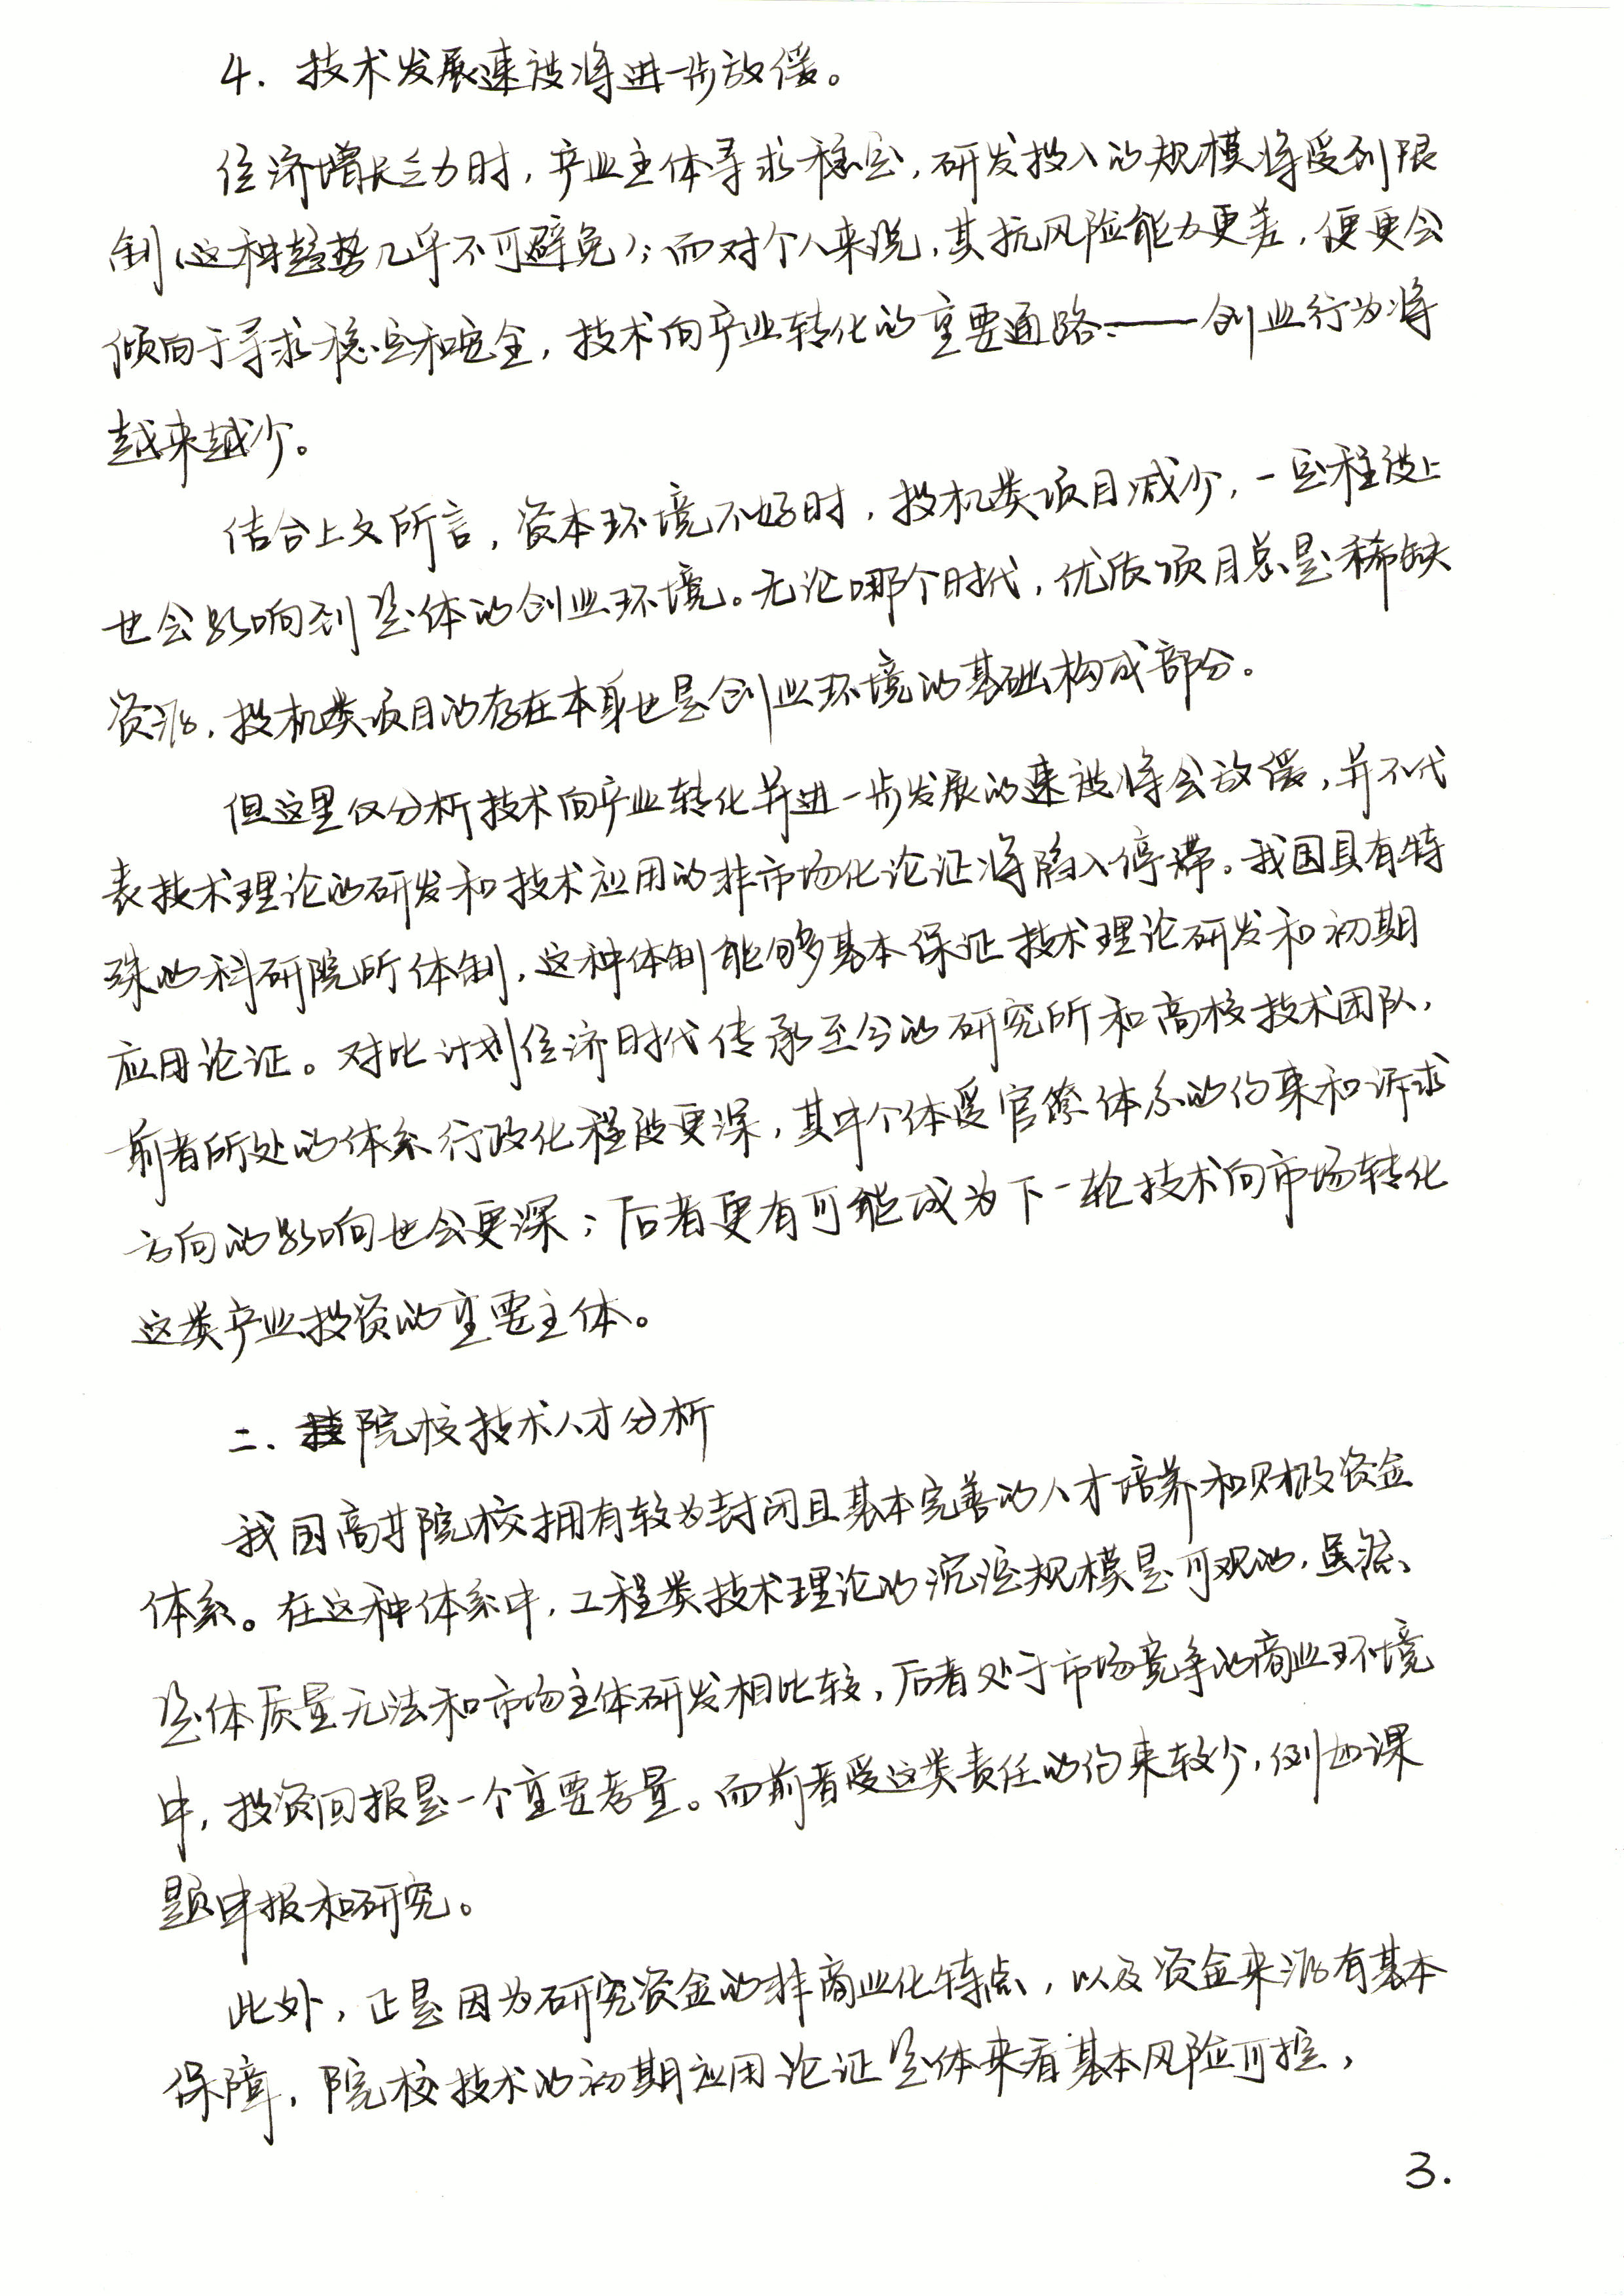 4. 技术发展速度将进一步放缓。
经济增长乏力时,产业主体寻求稳定,研发投入的规模将受到限
制(这种趋势几乎不可避免);而对个人来说,其抗风险能力更差,便更会
倾向于寻求稳定和安全,技术向产业转化的重要通路——创业行为将
越来越少。
结合上文所言,资本环境不好时,投机类项目减少,一定程度上
也会影响到总体的创业环境。无论哪个时代,优质项目总是稀缺
资源,投机类项目的存在本身也是创业环境的基础构成部分。
但这里仅分析技术向产业转化并进一步发展的速度将会放缓,并不代
表技术理论的研发和技术应用的非市场化论证将陷入停滞。我国具有特
殊的科研院所体制,这种体制能够基本保证技术理论研发和初期
应用论证。对比计划经济时代传承至今的研究所和高校技术团队,
前者所处的体系行政化程度更深,其中个体受官僚体系的约束和诉求
方向的影响也会更深;后者更有可能成为下一轮技术向市场转化
这类产业投资的重要主体。
二、院校技术人才分析
我国高等院校拥有较为封闭且基本完善的人才培养和财政资金
体系。在这种体系中,工程类技术理论的沉淀规模是可观的,虽然
总体质量无法和市场主体研发相比较,后者处于市场竞争的商业环境
中,投资回报是一个重要考量。而前者受这类责任的约束较少,例如课
题申报和研究。
此外,正是因为研究资金的非商业化特点,以及资金来源有基本
保障,院校技术的初期应用论证总体来看基本风险可控,
3.